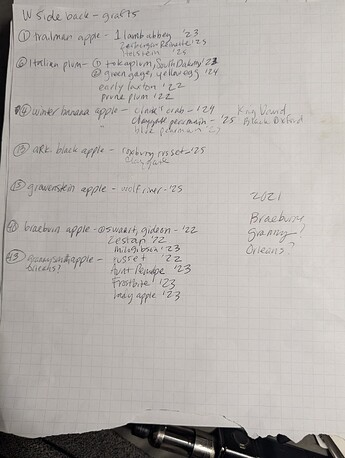 W Side back - grafts
① trailman apple - 1 lamb abbey '23
Zabergau Reinette '25
Holstein '25
② Italian plum - ① toka plum, South Dakota '23
② green gage, yellow egg '24
early laxton '22
prune plum '22
winter banana apple - clark's crab - '24 King David
claygate pearmain - '25 Black Oxford
blue pearmain '25
ark black apple - roxbury russet - '25
claygate
⑮ gravenstein apple - wolf river - '25
2021
Braeburn
granny?
Orleans?
braeburn apple - sweet 16, gideon - '22
Zestar '22
'23
granny smith apple - russet '22
hunt russet '23
Frostbite '23
lady apple '23